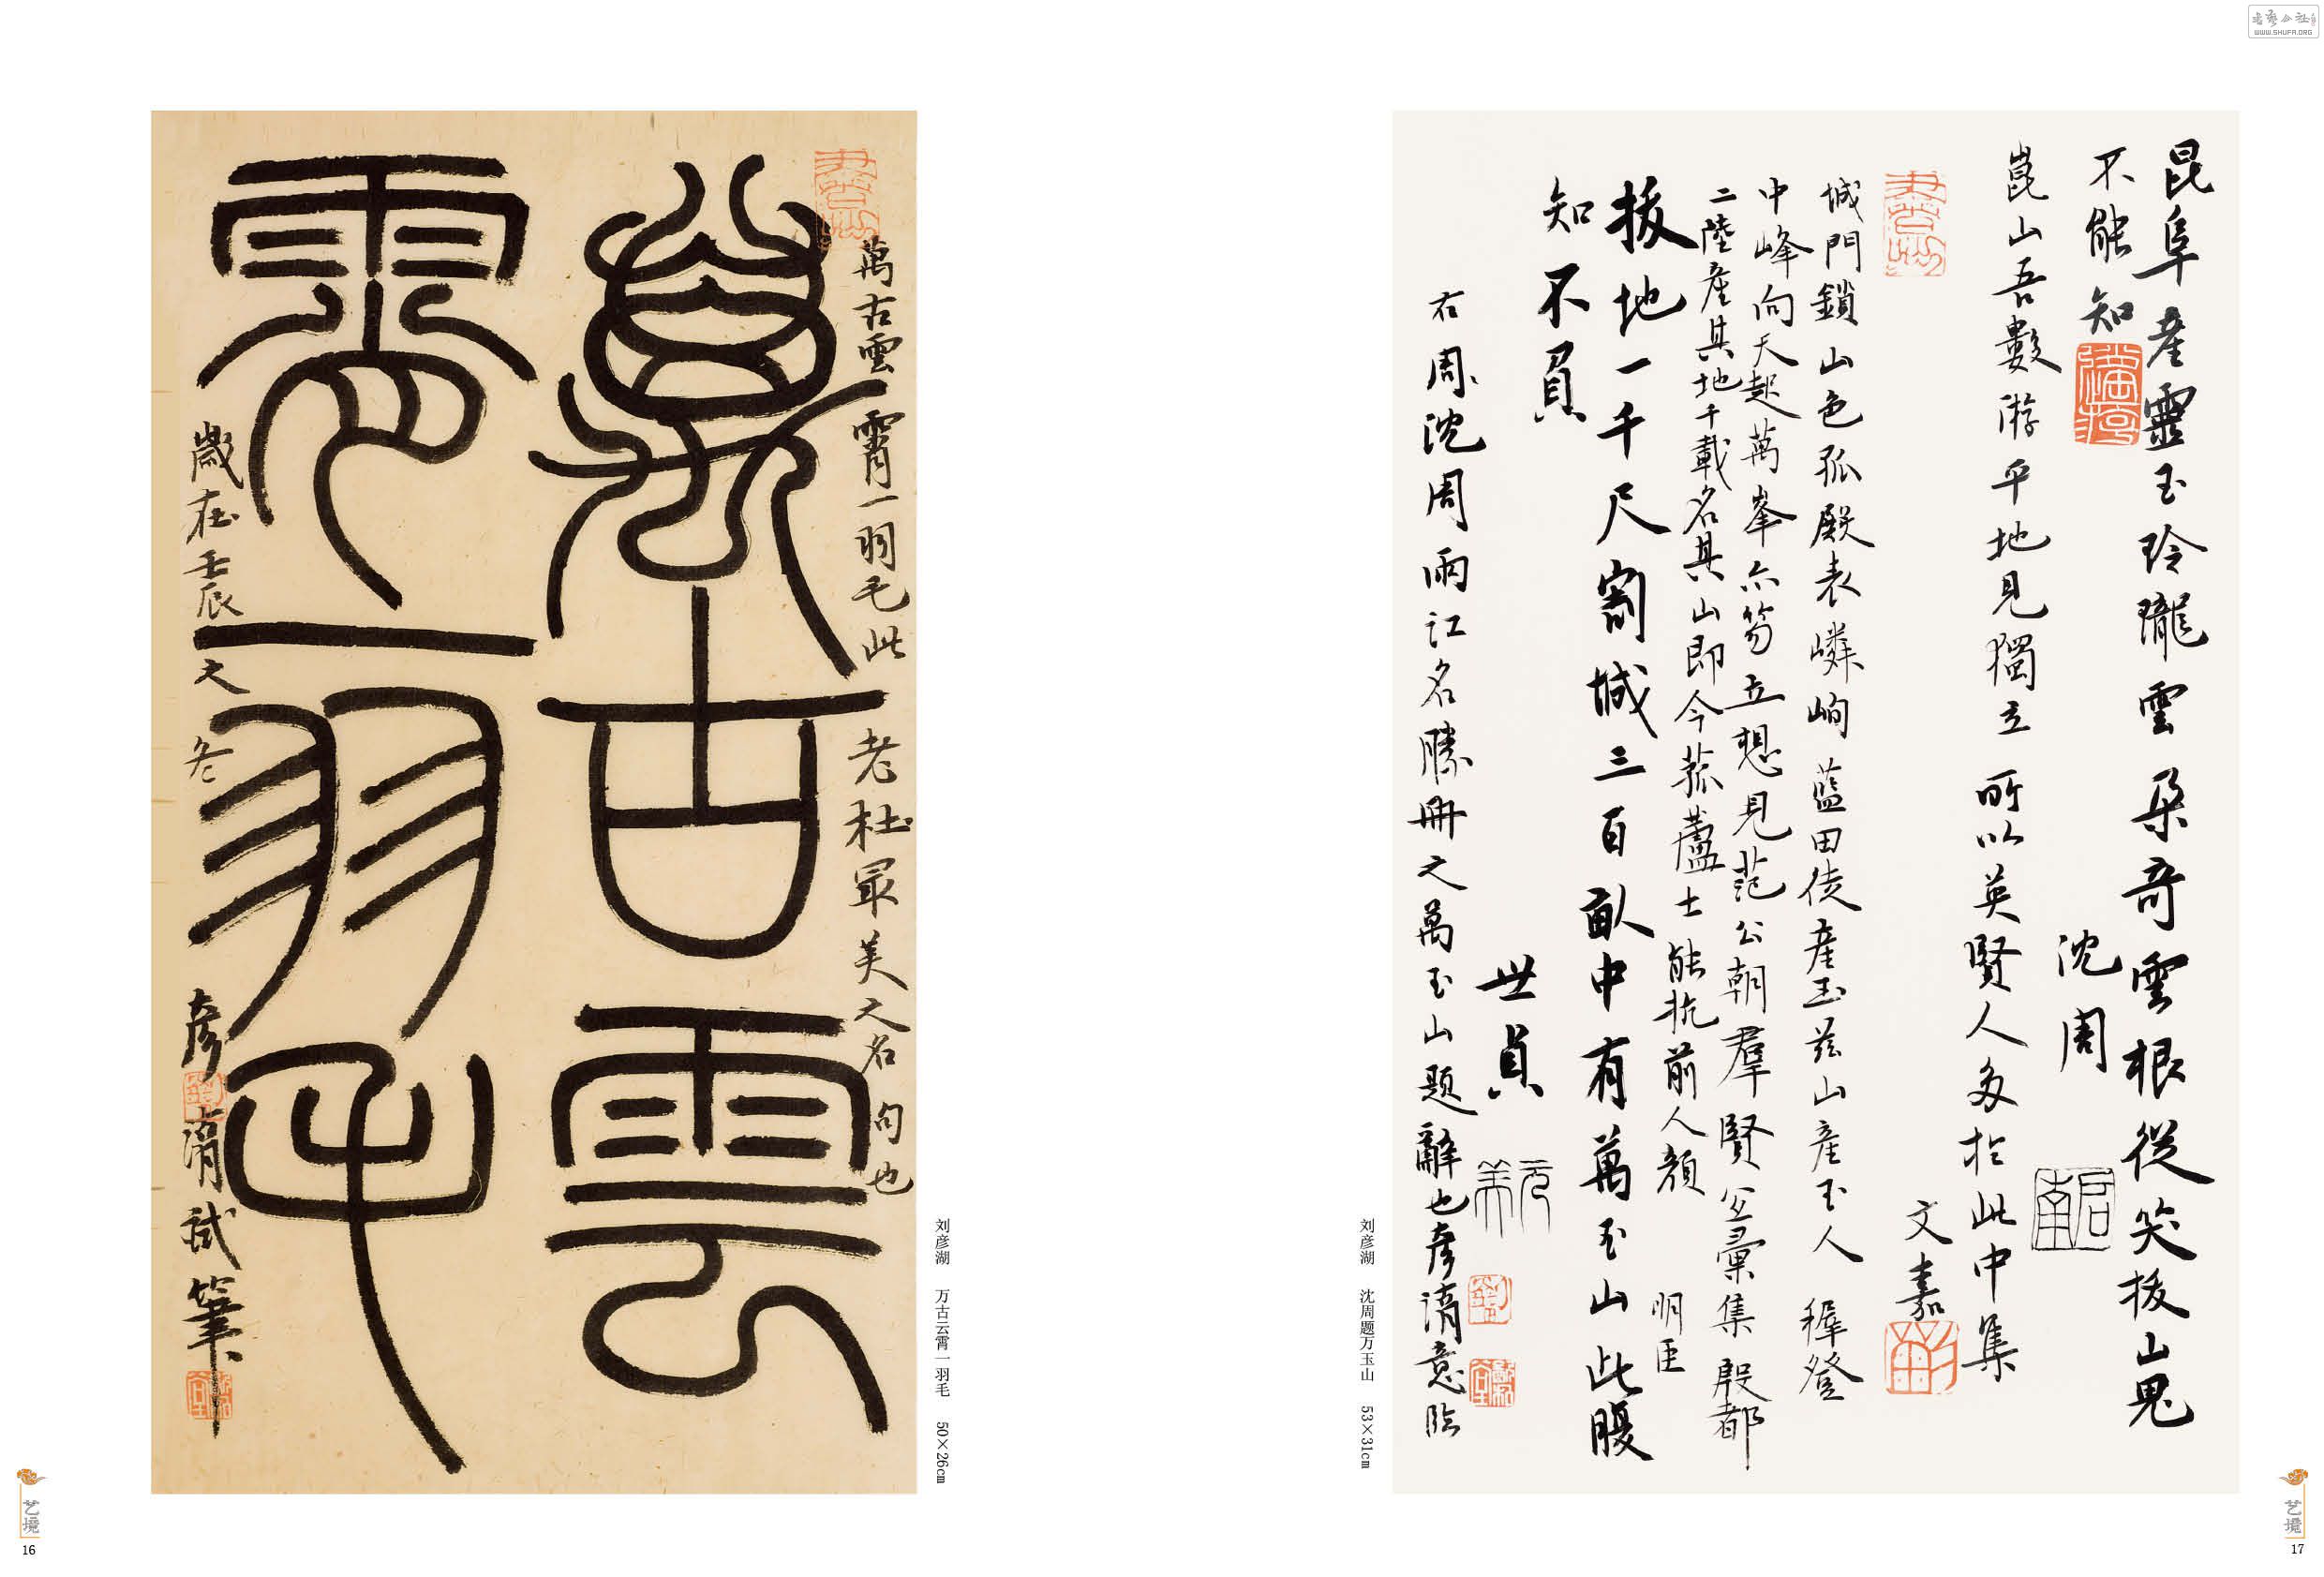 萬古雲
霄一羽毛
萬古雲霄一羽毛此老杜最美之名句也
歲在壬辰之冬彥湖試筆
刘彦湖 万古云霄一羽毛 50×26cm
艺境
16
昆阜產靈玉玲瓏雲朵奇雲根從突拔山鬼
不能知 沈周
崑山吾數游平地見獨立所以英賢人多於此中集
文嘉
城門鎖山色孤殿表嶙峋藍田徒產玉茲山產玉人 穉登
中峰向天起萬峯亦笏立想見范公朝羣賢並彙集 殷都
二陸產其地千載名其山即今菰蘆士能抗前人顏 明臣
拔地一千尺割城三百畝中有萬玉山此腹
知不員 世貞
元美
右周沈周兩江名勝冊之萬玉山題辭也彥湖意臨
刘彦湖 沈周题万玉山 53×31cm
艺境
17
WWW.SHUFA.ORG